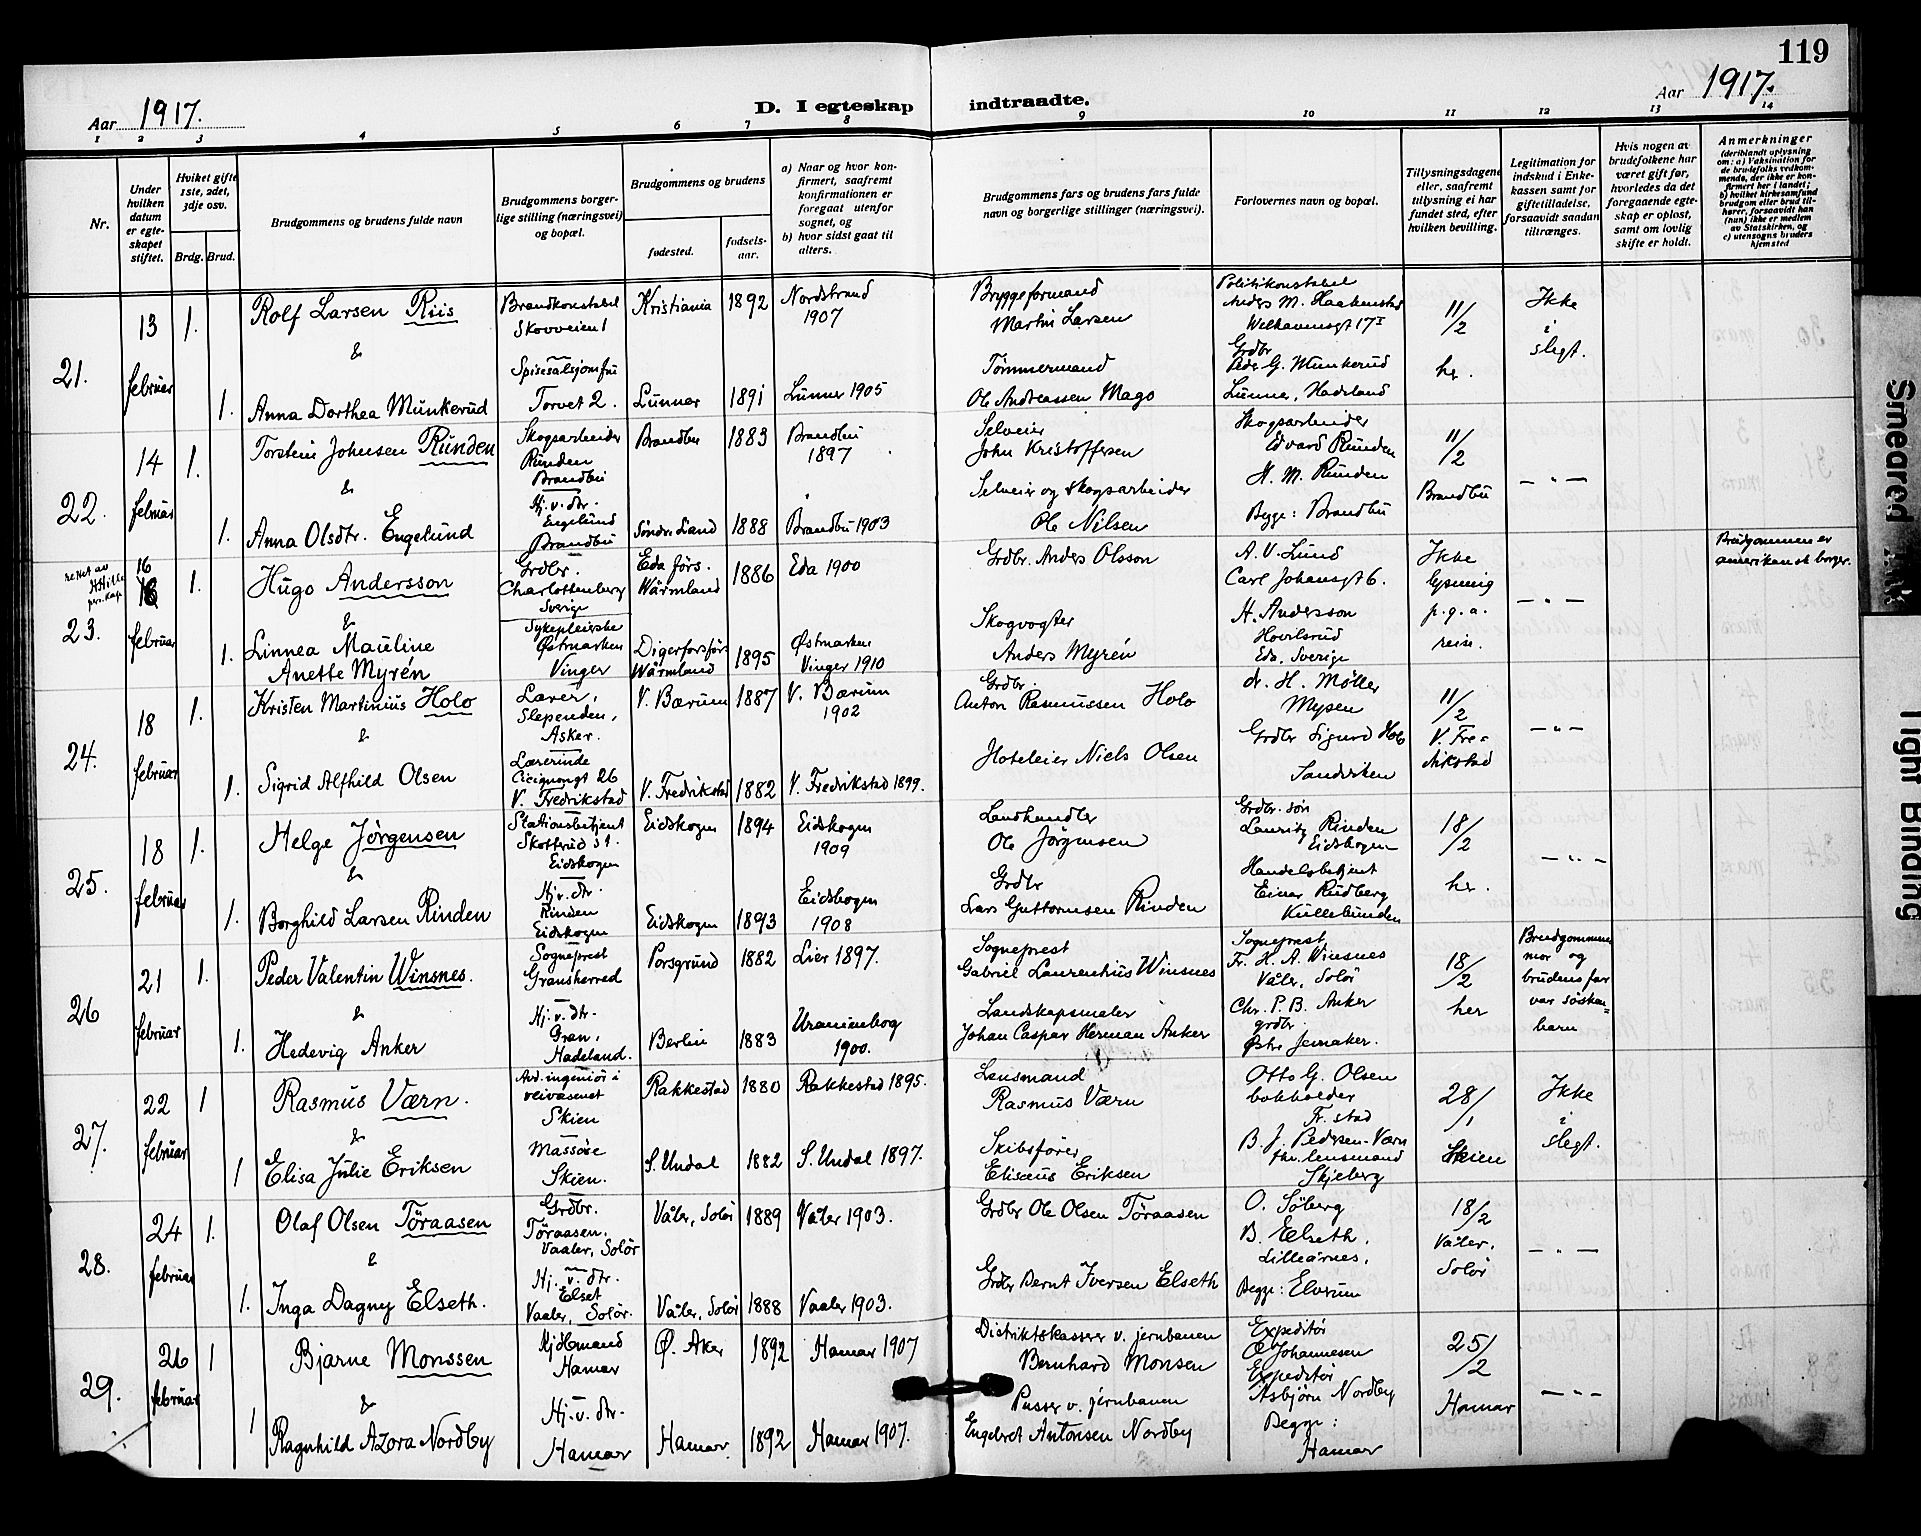 119
Aar 1917.
D. I egteskap indtraadte.
Aar 1917.
1 2 3 4 5 6 7 8 9 10 11 12 13 14
Nr.
Under hvilken datum er egteskapet stiftet.
Hviket gifte 1ste, 2det, 3dje osv.
Brdg. Brud.
Brudgommens og brudens fulde navn
Brudgommens borgerlige stilling (næringsvei) og bopæl.
Brudgommens og brudens
fødested.
fødselsaar.
a) Naar og hvor konfirmert, saafremt konfirmationen er foregaat utenfor sognet, og
b) hvor sidst gaat til alters.
Brudgommens fars og brudens fars fulde navn og borgerlige stillinger (næringsvei).
Forlovernes navn og bopæl.
Tillysningsdagene eller, saafremt tillysning ei har fundet sted, efter hvilken bevilling.
Legitimation for indskud i Enkekassen samt for giftetilladelse, forsaavidt saadan tiltrænges.
Hvis nogen av brudefolkene har været gift før, hvorledes da det foregaaende egteskap er opløst, samt om lovlig skifte er holdt.
Anmerkninger
(deriblandt oplysning om: a) Vaksination for de brudefolks vedkommende, der ikke er konfirmert her i landet; b) hvilket kirkesamfund brudgom eller brud tilhører, forsaavidt han (hun) ikke er medlem av Statskirken, og c) utensogns bruders hjemsted
21.
13 februar
1.
Rolf Larsen Riis
Brandkonstabel
Skovveien 1
Kristiania 1892
Nordstrand 1907
Bryggeformand
Martin Larsen
Politikonstabel
Anders M. Haakenstad
Welhavensgt 17 I
11/2
her.
Ikke i slegt.
&
1.
Anna Dorthea Munkerud
Spisesalsjomfru
Torvet 2.
Lunner 1891
Lunner 1905
Tømmermand
Ole Andreassen Mago
Grdbr
Peder G. Munkerud
Lunner, Hadeland
22.
14 februar
1.
Torstein Johnsen Runden
Skogsarbeider
Runden
Brandbu
Brandbu 1883
Brandbu 1897
Selveier
John Kristoffersen
Skogsarbeider
Edvard Runden
H. M. Runden
Begge: Brandbu
11/2
Brandbu
— " —
&
1.
Anna Olsdtr. Engelund
Hj. v. dtr.
Engelund
Brandbu
Søndr. Land 1888
Brandbu 1903
Selveier og skogsarbeider
Ole Nilsen
rettet av
23.
16 februar
1.
Hugo Andersson
Grdbr.
Charlottenberg
Sverige
Eda förs.
Wärmland
1886
Eda 1900
Grdbr. Anders Olsson
A. V. Lund
Carl Johansgt 6.
H. Andersson
Eda, Sverige
Ikke lysning p.g.a. reise.
— " —
Brudgommen er
amerikansk borger.
&
1.
Linnea Mauline
Anette Myrén
Sykepleierske
Østmarken
Vinger
Wärmland
1895
Østmarken
Vinger 1910
Skogvogter
Anders Myrén
24.
18 februar
1.
Kristen Martinius Holo
Lærer,
Slependen,
Asker.
V. Bærum 1887
V. Bærum 1902
Grdbr.
Anton Rasmussen Holo
dr. H. Møller
Mysen
Grdbr Sigurd Holo
Sandviken
11/2
V. Fredrikstad
— " —
&
1.
Sigrid Alfhild Olsen
Lærerinde
V. Fredrikstad
V. Fredrikstad 1882
V. Fredrikstad 1899.
Hoteleier Niels Olsen
25.
18 februar
1.
Helge Jørgensen
Stationsbetjent
Skotterud st.
Eidskogen
Eidskogen 1894
Eidskogen 1909
Landhandler
Ole Jørgensen
Grdbr. søn
Lauritz Rinden
Eidskogen
Handelsbetjent
Einar Rudberg
Kullebunden
18/2
her.
— " —
&
1.
Borghild Larsen Rinden
Hj. v. dtr.
Rinden
Eidskogen
Eidskogen 1893
Eidskogen 1908
Grdbr
Lars Guttormsen Rinden
26
21 februar
1.
Peder Valentin Winsnes.
Sogneprest
Gransherred
Porsgrund 1882
Lier 1897.
Sogneprest
Gabriel Laurentius Winsnes
Sogneprest
Fr. H. A. Winsnes
Våler, Solør
Chr. P. B. Anker
grdbr.
Østre Jernaker.
18/2
her
Brudgommens
mor og
brudens far
var søsken=
barn
&
1.
Hedevig Anker
Hj. v. dtr.
Gran,
Hadeland.
Berlin 1883
Uranienborg 1900.
Landskapsmaler
Johan Caspar Herman Anker
27.
22 februar
1
Rasmus Værn.
Avd. ingeniør i
veivæsenet
Skien
Rakkestad 1880
Rakkestad 1895.
Lensmand
Rasmus Værn
Otto G. Olsen
bokholder
Fr. stad
B. J. Pedersen-Værn
fhr. lensmand
Skjeberg
28/1
Skien
Ikke i slegt.
&
1
Elisa Julie Eriksen
Massøse
Skien.
S. Undal 1882
S. Undal 1897.
Skibsfører
Elisæus Eriksen
28.
24 februar
1.
Olaf Olsen Töraasen
Grdbr.
Töraasen.
Vaaler, Solør
Våler, Solør 1889
Våler 1903.
Grdbr Ole Olsen Töraasen
O. Söberg
B. Elseth.
Lilleårnes.
Begge: Elverum
18/2
Våler.
Solør
— " —
&
1.
Inga Dagny Elseth.
Hj. v. dtr.
Elset
Vaaler, Solør.
Våler, Solør 1888
Vaaler 1903.
Grdbr Bernt Iversen Elseth
29.
26 februar
1
Bjarne Monssen
Kjøbmand
Hamar
Ø. Aker 1892
Hamar 1907
Distriktskasserer v. jernbanen
Bernhard Monsen
Expeditør
Johannesen
Expeditør
Asbjørn Nordby
Begge:
Hamar
25/2
Hamar
— " —
&
1
Ragnhild Azora Nordby
Hj. v. dtr.
Hamar
Hamar. 1892
Hamar 1907.
Pusser v. jernbanen
Engebret Antonsen Nordby
Smeared Ink
Tight Binding